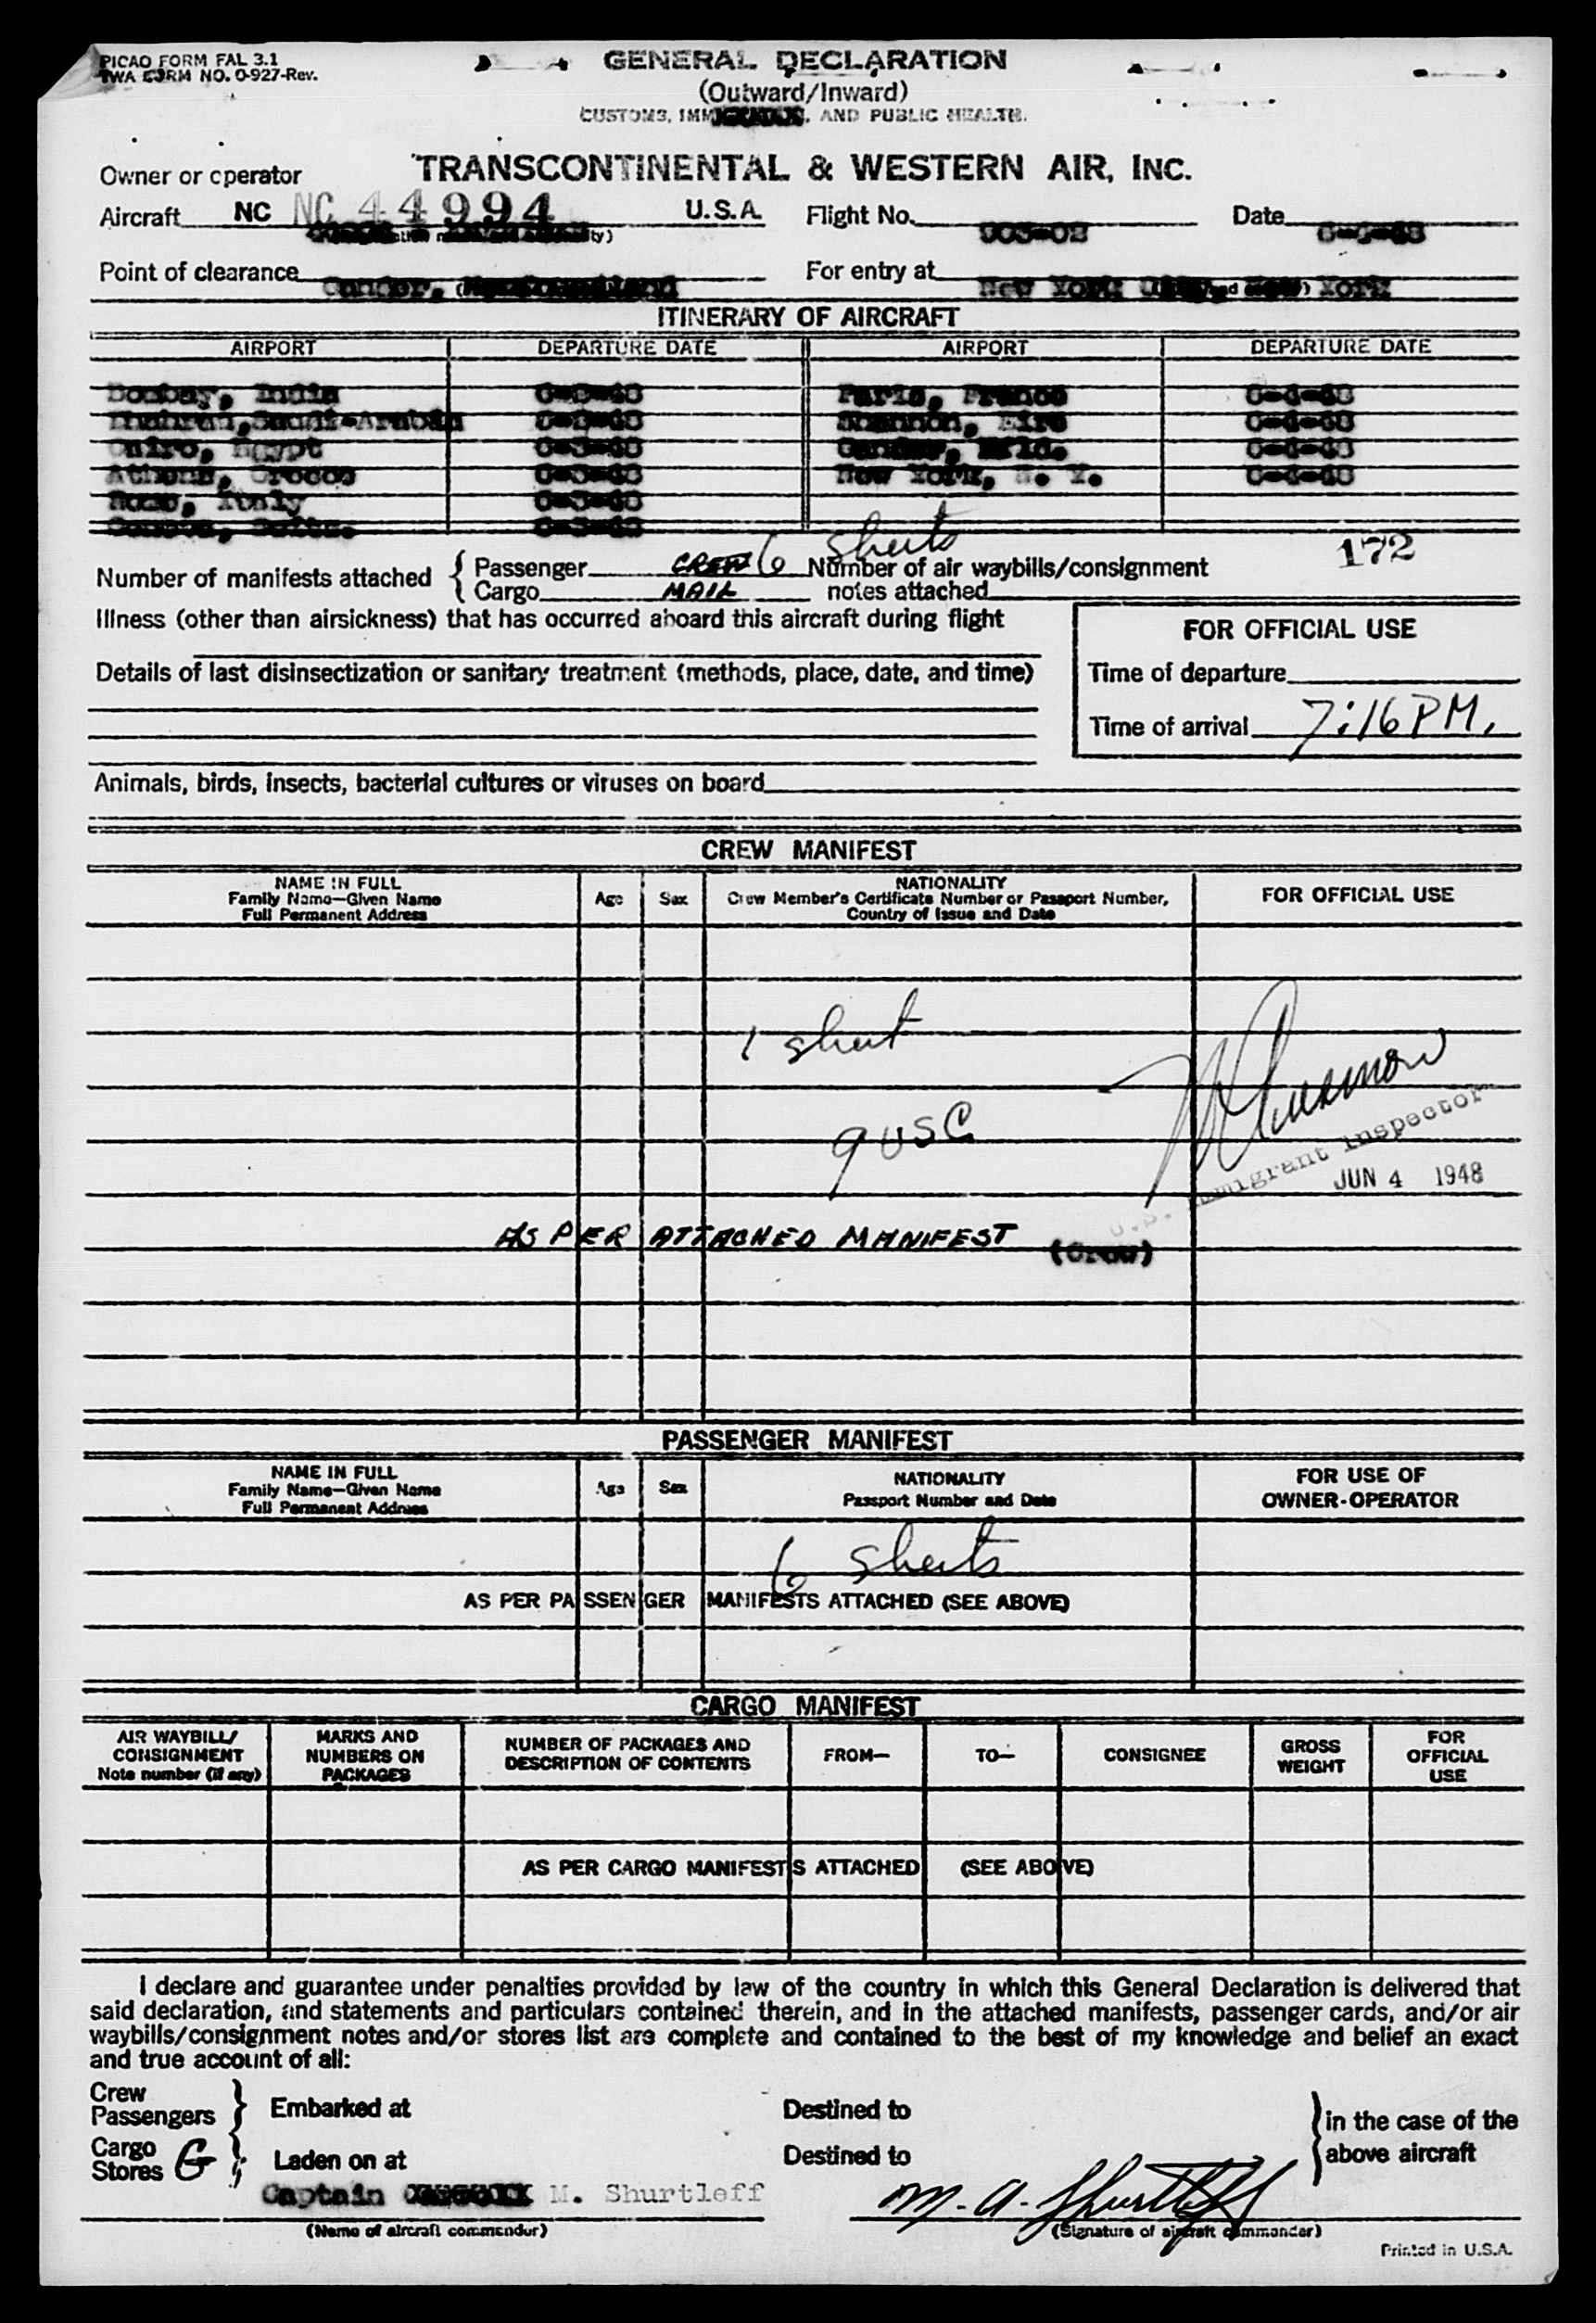 PICAO FORM FAL 3.1
TWA FORM NO. O-927-Rev.
GENERAL DECLARATION
(Outward/Inward)
CUSTOMS, IMMIGRATION, AND PUBLIC HEALTH.
Owner or operator TRANSCONTINENTAL & WESTERN AIR, INC.
Aircraft NC NC 44994 U.S.A. Flight No. Date
Point of clearance For entry at New York York
ITINERARY OF AIRCRAFT
AIRPORT DEPARTURE DATE AIRPORT DEPARTURE DATE
Bombay, India Paris, France
Dhahran, Saudi-Arabia Shannon, Eire
Cairo, Egypt
Athens, Greece New York, N. Y.
Rome, Italy
172
Number of manifests attached { Passenger CREW 6 sheets Number of air waybills/consignment
Cargo MAIL notes attached
Illness (other than airsickness) that has occurred aboard this aircraft during flight
FOR OFFICIAL USE
Details of last disinsectization or sanitary treatment (methods, place, date, and time)
Time of departure
Time of arrival 7:16 PM.
Animals, birds, insects, bacterial cultures or viruses on board
CREW MANIFEST
NAME IN FULL
Family Name—Given Name
Full Permanent Address
Age Sex
NATIONALITY
Crew Member's Certificate Number or Passport Number,
Country of Issue and Date
FOR OFFICIAL USE
1 sheet
9 USC
U.S. Immigrant Inspector
JUN 4 1948
AS PER ATTACHED MANIFEST (Crew)
PASSENGER MANIFEST
NAME IN FULL
Family Name—Given Name
Full Permanent Address
Age Sex
NATIONALITY
Passport Number and Date
FOR USE OF
OWNER-OPERATOR
6 sheets
AS PER PASSENGER MANIFESTS ATTACHED (SEE ABOVE)
CARGO MANIFEST
AIR WAYBILL/
CONSIGNMENT
Note number (if any)
MARKS AND
NUMBERS ON
PACKAGES
NUMBER OF PACKAGES AND
DESCRIPTION OF CONTENTS
FROM—
TO—
CONSIGNEE
GROSS
WEIGHT
FOR
OFFICIAL
USE
AS PER CARGO MANIFESTS ATTACHED (SEE ABOVE)
I declare and guarantee under penalties provided by law of the country in which this General Declaration is delivered that
said declaration, and statements and particulars contained therein, and in the attached manifests, passenger cards, and/or air
waybills/consignment notes and/or stores list are complete and contained to the best of my knowledge and belief an exact
and true account of all:
Crew
Passengers } Embarked at Destined to
Cargo
Stores G } Laden on at Destined to
} in the case of the
above aircraft
Captain M. Shurtleff M. A. Shurtleff
(Name of aircraft commander) (Signature of aircraft commander)
Printed in U.S.A.